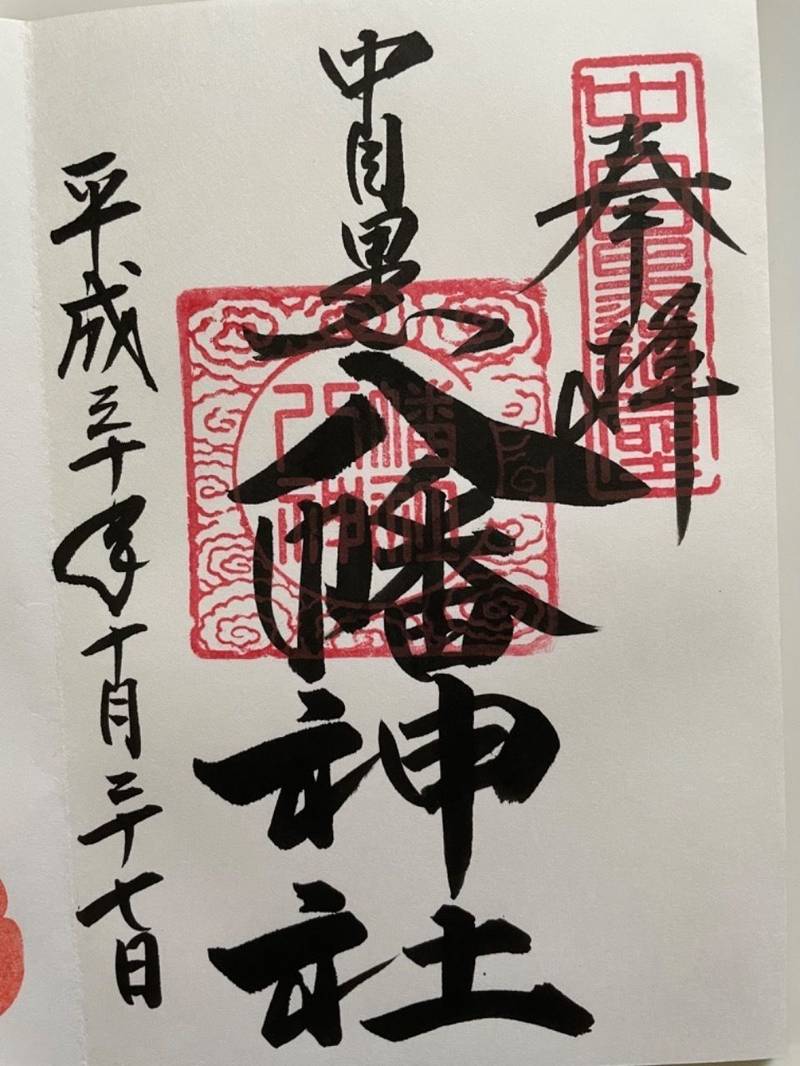 奉拝
中目黒鎮座
中目黒
八幡神社
八幡
神社
平成三十年十月二十七日